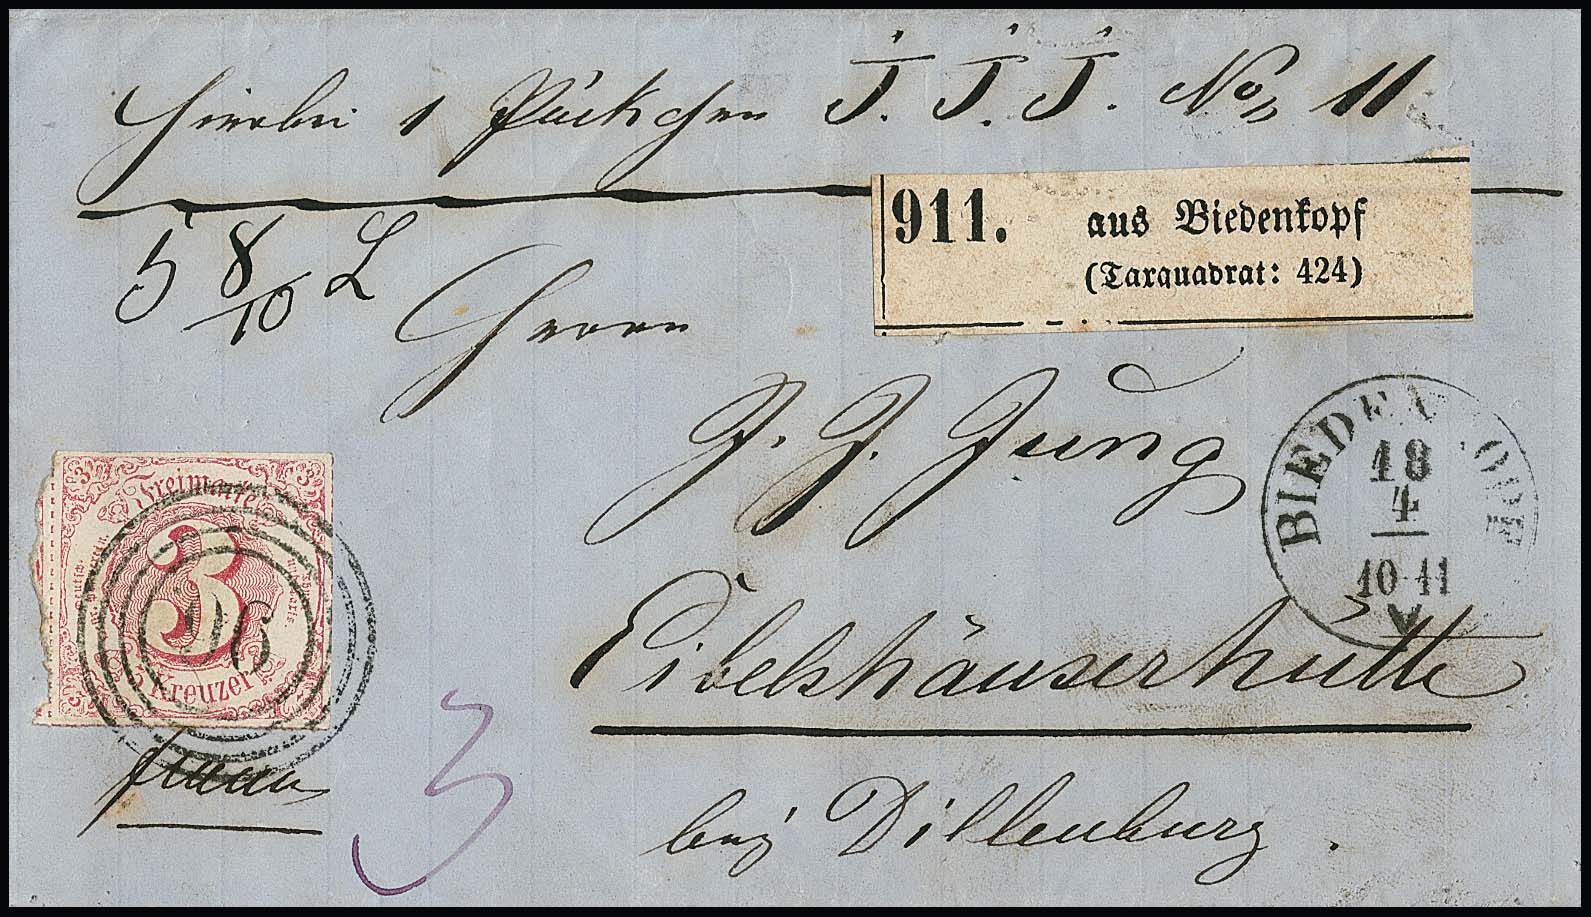 Hierbei 1 Päckchen J. J. J. No 11
911. aus Biedenkopf
(Taxquadrat: 424)
5 8/10 L
Herrn
J. J. Jung
BIEDENKOPF
18
4
10-11
V
Freimarke
3
Kreuzer
96
Eibelshäuserhütte
franco
3
bei Dillenburg.